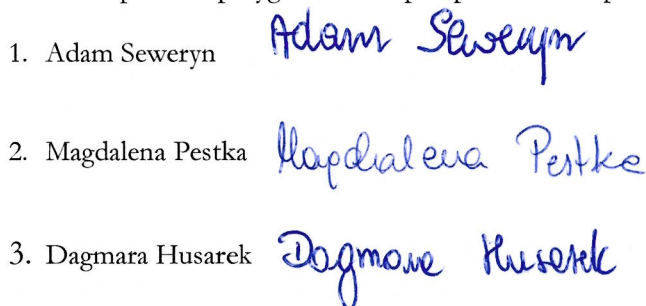 1. Adam Seweryn Adam Seweryn
2. Magdalena Pestka Magdalena Pestka
3. Dagmara Husarek Dagmara Husarek